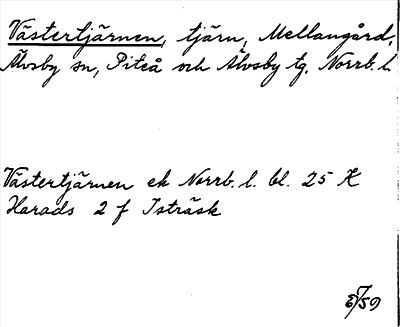 Västertjärnen, tjärn, Mellangård,
Älvsby sn, Piteå och Älvsby tg. Norrb. l.
Västertjärnen ek Norrb. l. bl. 25 K
Harads 2 f Isträsk
5/59